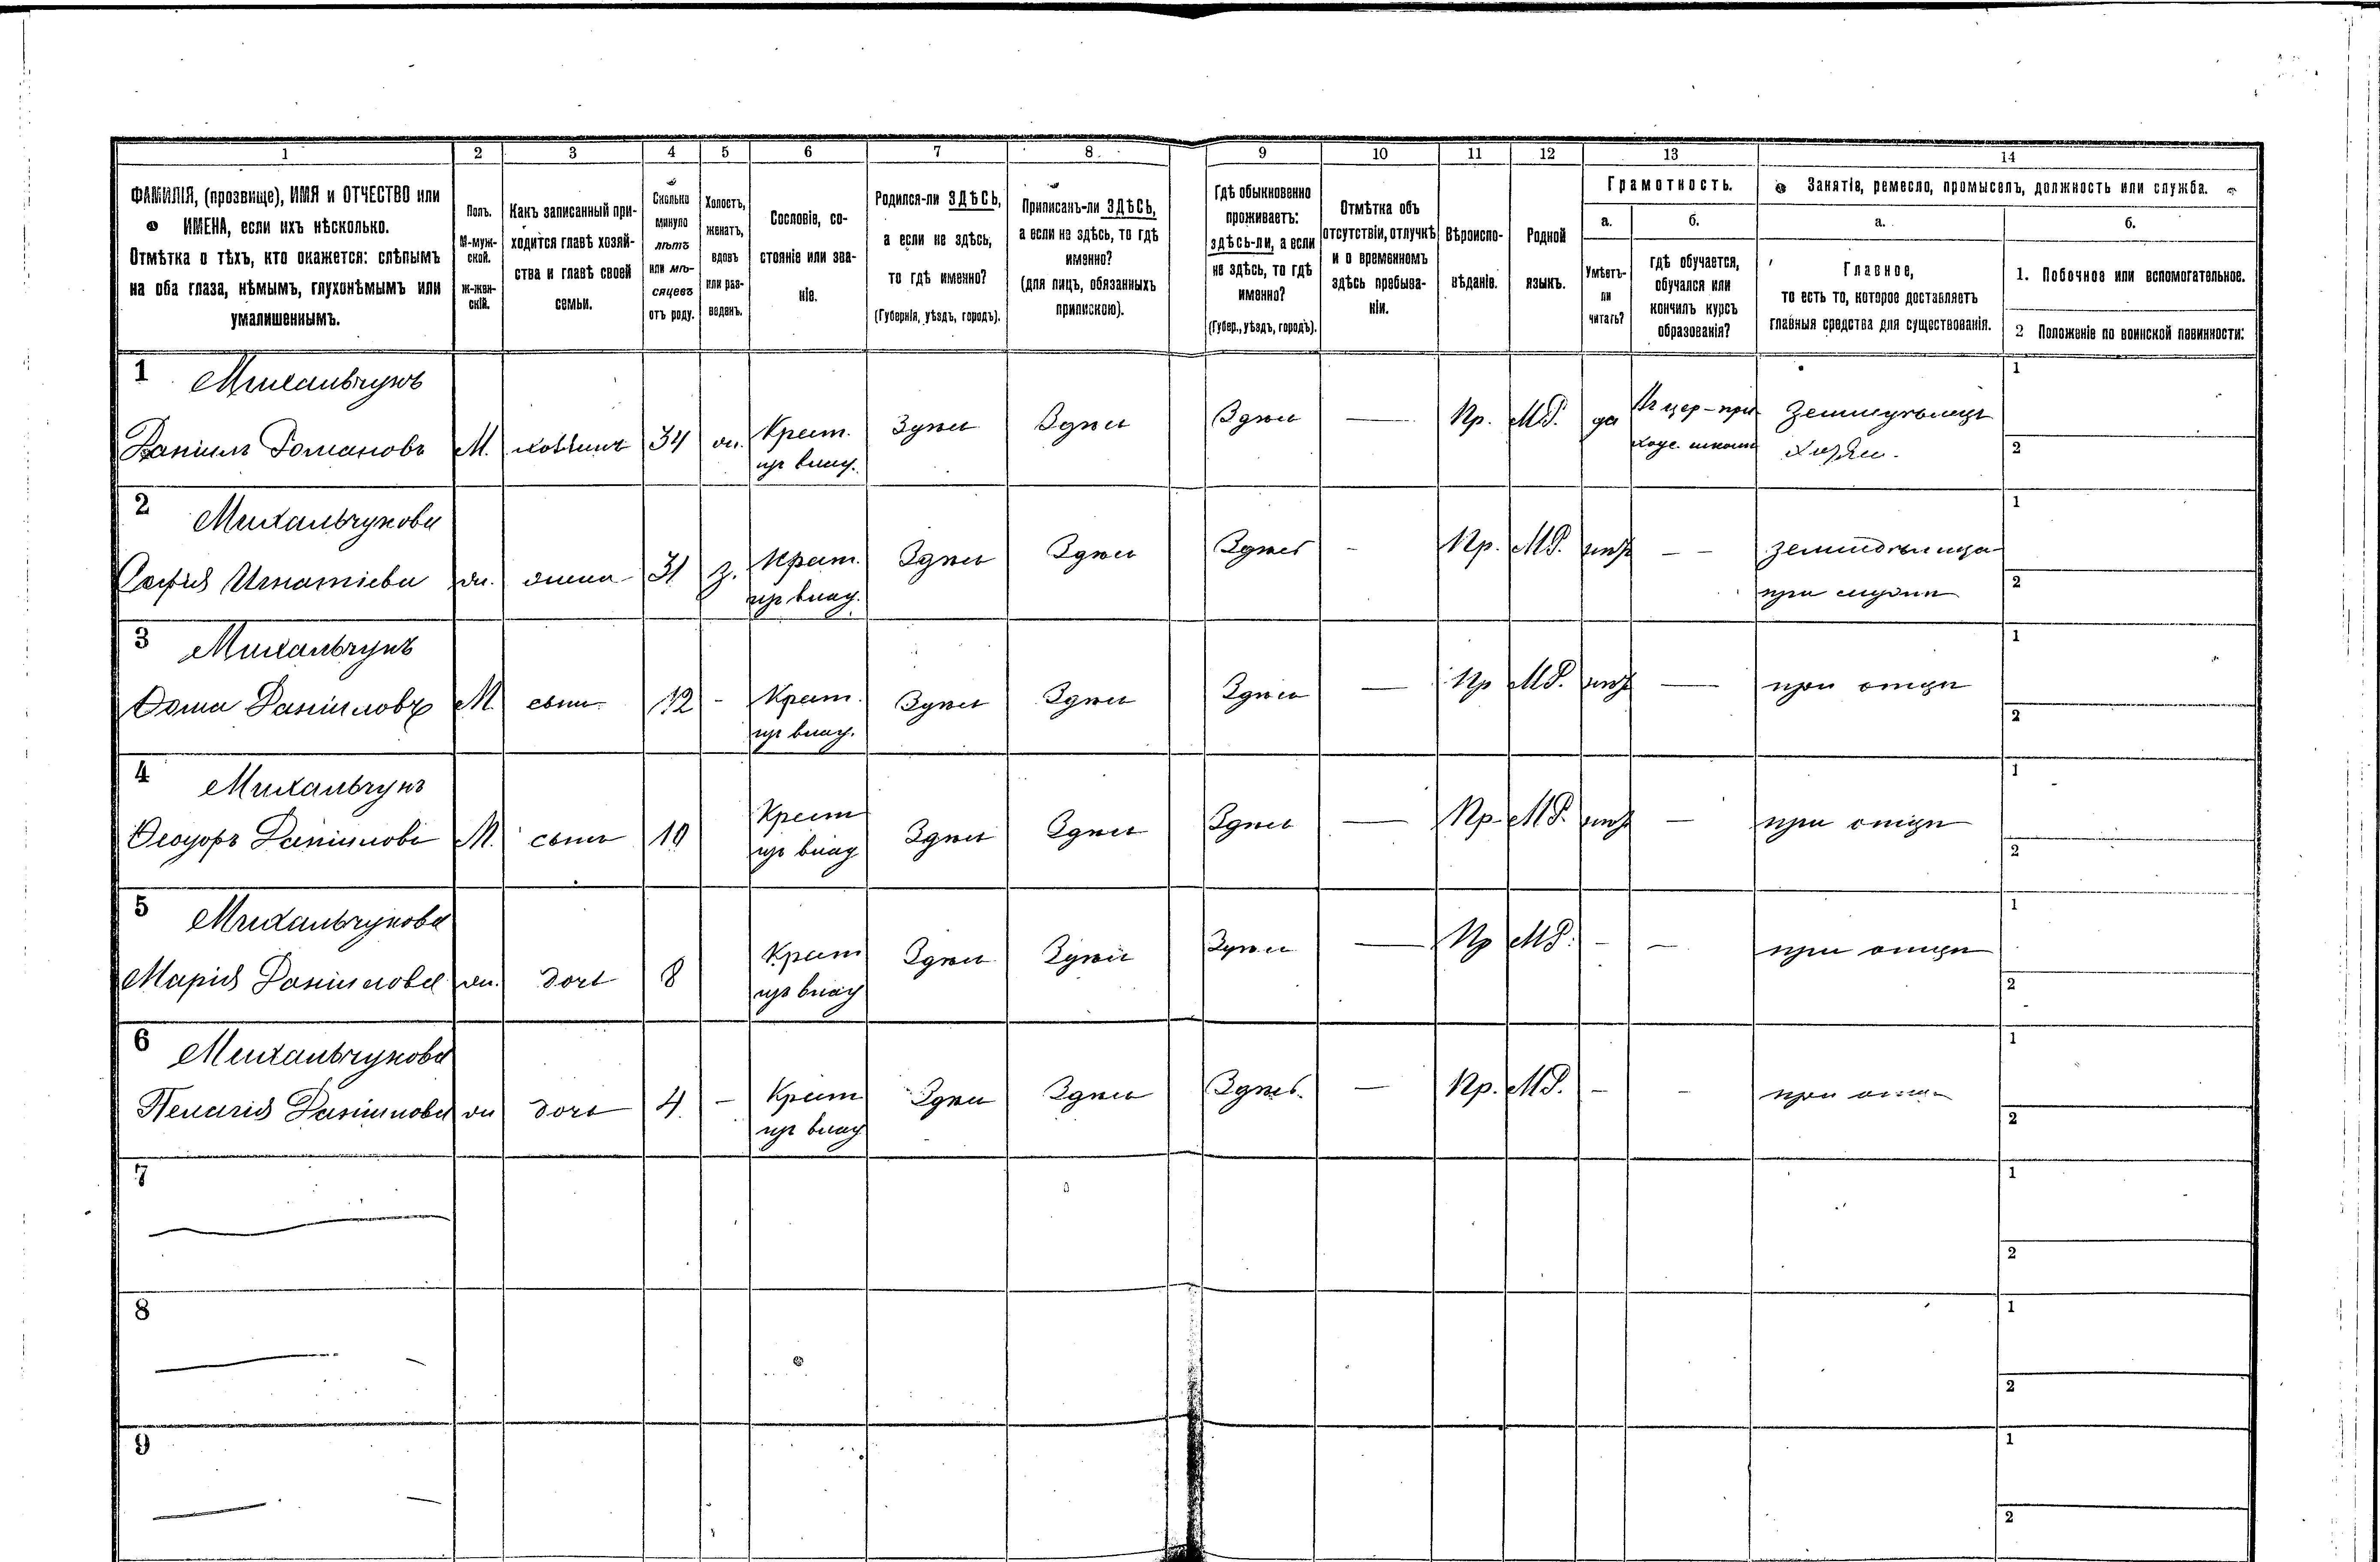 1 2 3 4 5 6 7 8 9 10 11 12 13 14
ФАМИЛІЯ, (прозвище), ИМЯ и ОТЧЕСТВО или
ИМЕНА, если ихъ нѣсколько.
Отмѣтка о тѣхъ, кто окажется: слѣпымъ
на оба глаза, нѣмымъ, глухонѣмымъ или
умалишеннымъ.
Полъ.
М-муж-
ской.
Ж-жен-
скій.
Какъ записанный при-
ходится главѣ хозяй-
ства и главѣ своей
семьи.
Сколько
минуло
лѣтъ
или мѣ-
сяцевъ
отъ роду.
Холостъ,
женатъ,
вдовъ
или раз-
веденъ.
Сословіе, со-
стояніе или зва-
ніе.
Родился-ли ЗДѢСЬ,
а если не здѣсь,
то гдѣ именно?
(Губернія, уѣздъ, городъ).
Приписанъ-ли ЗДѢСЬ,
а если не здѣсь, то гдѣ
именно?
(для лицъ, обязанныхъ
припискою).
Гдѣ обыкновенно
проживаетъ:
здѣсь-ли, а если
не здѣсь, то гдѣ
именно?
(Губер., уѣздъ, городъ).
Отмѣтка объ
отсутствіи, отлучкѣ
и о временномъ
здѣсь пребыва-
ніи.
Вѣроиспо-
вѣданіе.
Родной
языкъ.
Грамотность.
а.
Умѣетъ-
ли
читать?
б.
гдѣ обучается,
обучался или
кончилъ курсъ
образованія?
Занятіе, ремесло, промыселъ, должность или служба.
а.
Главное,
то есть то, которое доставляетъ
главныя средства для существованія.
б.
1. Побочное или вспомогательное.
2 Положеніе по воинской повинности:
1 Михальчукъ
Даніилъ Романовъ М. хозяинъ 34 ж. Крест. Здѣсь Здѣсь Здѣсь — Пр. М.Р. да Въ цер-при- Земледѣлецъ 1
изъ влад. ходс. школѣ хозяин. 2
2 Михальчукова
Софія Игнатіева ж. жена 31 з. Крест. Здѣсь Здѣсь Здѣсь - Пр. М.Р. нѣтъ — — земледѣлица 1
изъ влад. при мужѣ 2
3 Михальчукъ
Фома Даніиловъ М. сынъ 12 - Крест. Здѣсь Здѣсь Здѣсь — Пр М.Р. нѣтъ — при отцѣ 1
изъ влад. 2
4 Михальчукъ
Феодоръ Даніиловъ М. сынъ 10 Крест Здѣсь Здѣсь Здѣсь — Пр М.Р. нѣтъ — при отцѣ 1
изъ влад 2
5 Михальчукова
Марія Даніилова ж. дочь 8 Крест Здѣсь Здѣсь Здѣсь — Пр М.Р. - — при отцѣ 1
изъ влад 2
6 Михальчукова
Пелагія Даніилова ж дочь 4 — Крест Здѣсь Здѣсь Здѣсь. — Пр. М.Р. - - при отцѣ 1
изъ влад 2
7 1
2
8 1
2
9 1
2